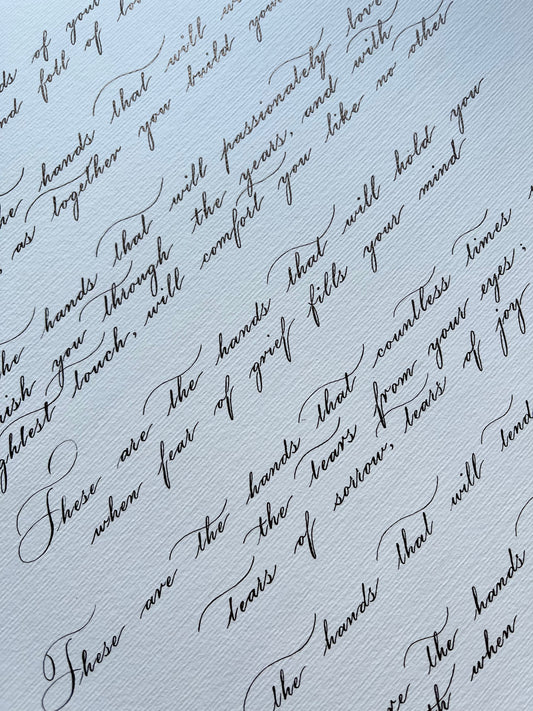 of your
and full of
hands that will
as together you build your
the hands that will passionately love
you through the years, and with
touch, will comfort you like no other
These are the hands that will hold you
when fear of grief fills your mind
These are the hands that countless times
the tears from your eyes;
tears of sorrow, tears of joy
These the hands that will tend
the hands
when